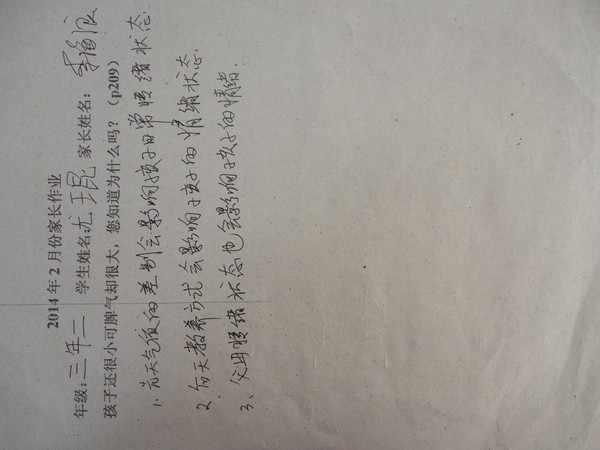 2014年2月份家长作业
年级:三年二 学生姓名:尤琨 家长姓名:李
孩子还很小可脾气却很大，您知道为什么吗？（p209）
1、天气候的差别会影响孩子日常情绪状态.
2、每天教养方式会影响孩子的情绪状态.
3、父母情绪状态也会影响孩子的情绪.